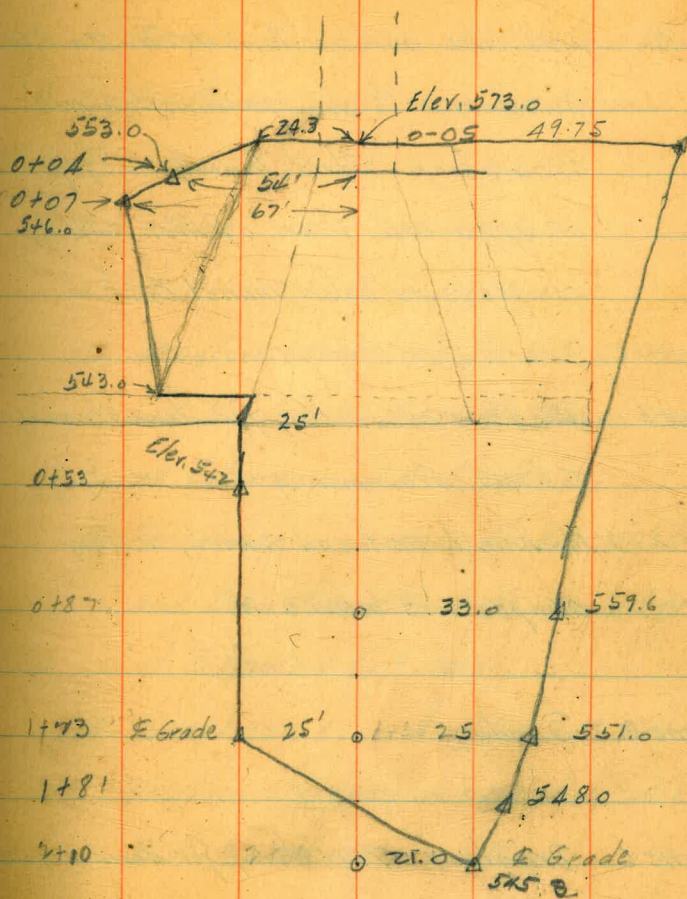 Elev. 573.0
553.0 24.3 0-05 49.75
0+04 54'
0+07 67'
546.0
543.0
25'
Elev. 542
0+53
0+87 33.0 559.6
1+73 ₵ Grade 25' 25 551.0
1+81 548.0
2+10 21.0 ₵ Grade
545.3